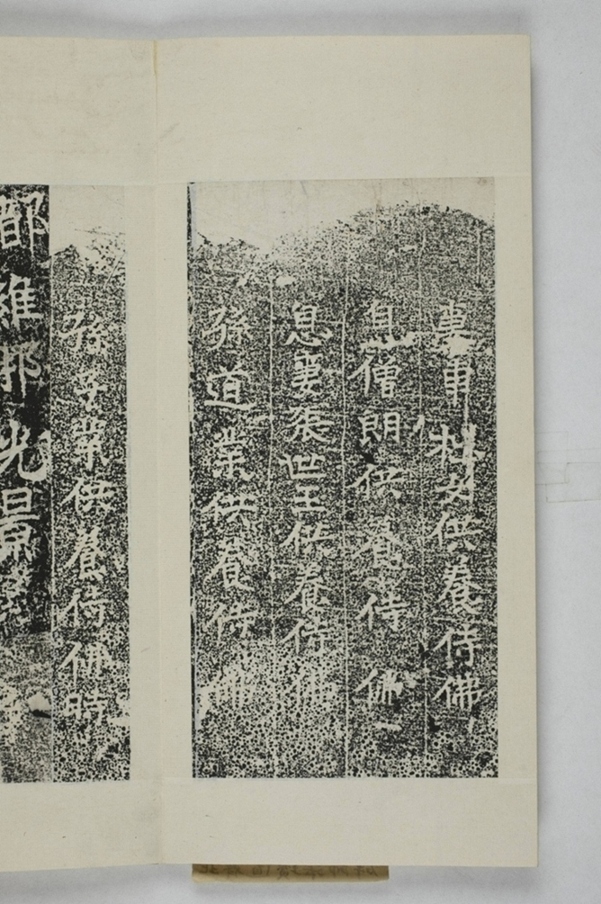 妻申女供養侍佛
息僧朗供養侍佛
息妻張世王供養侍佛
孫道業供養侍佛
孫善業供養侍佛時
都維那光景